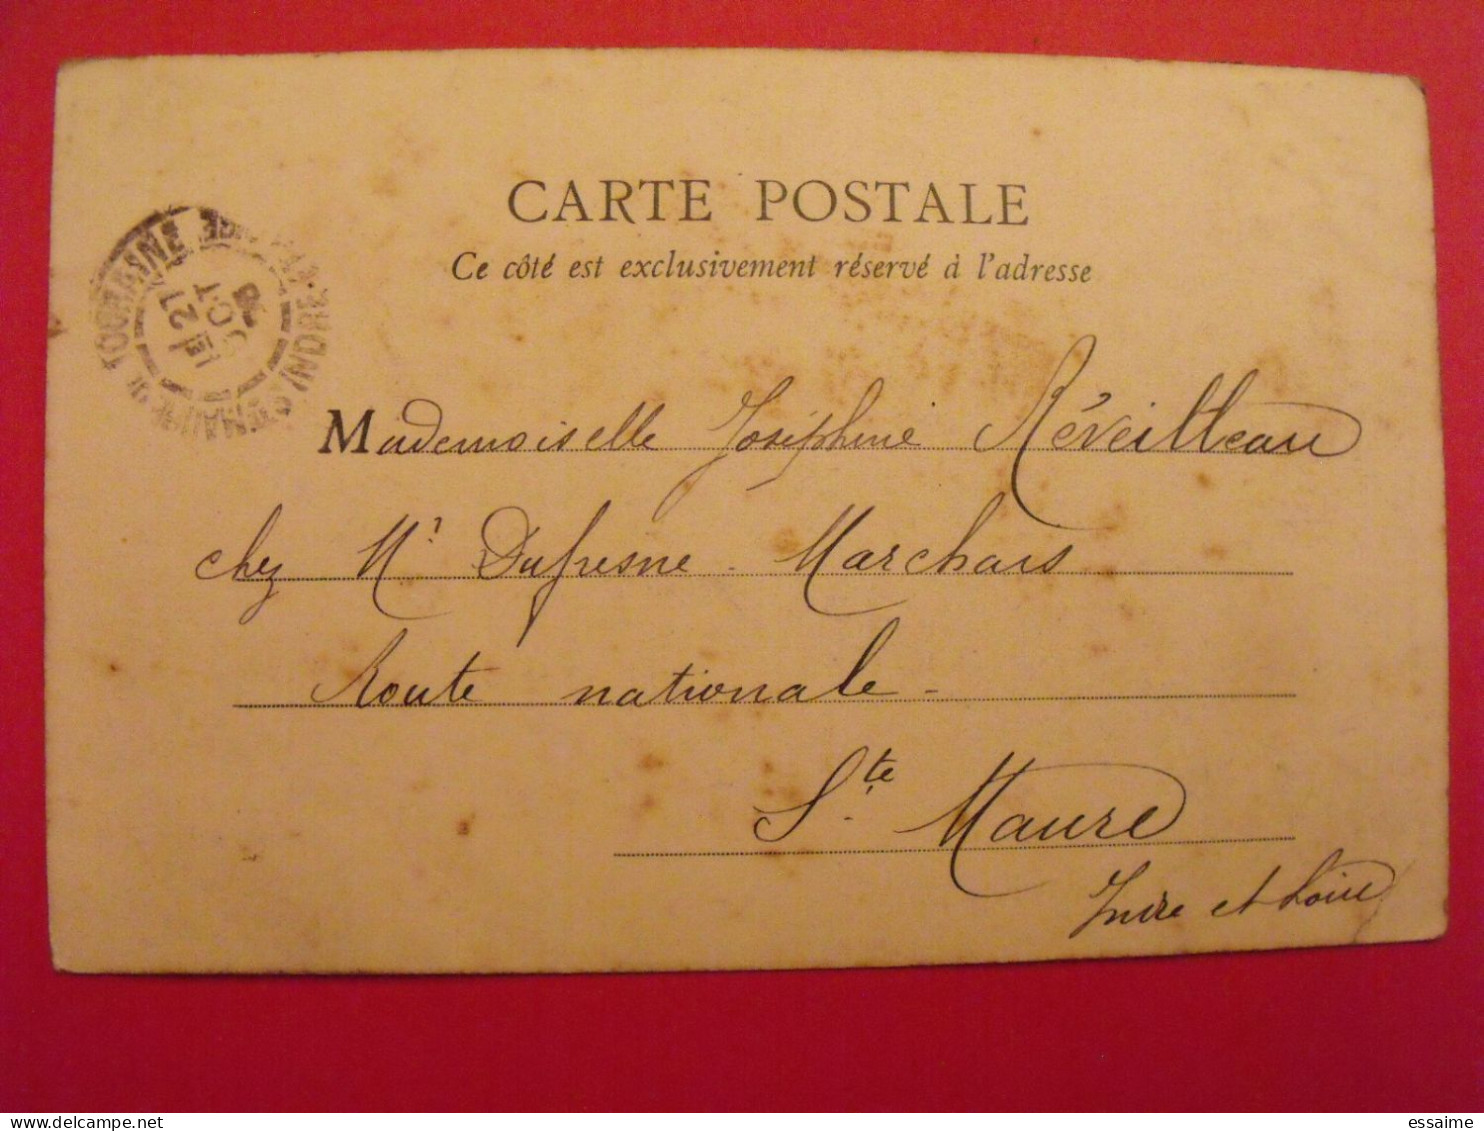 CARTE POSTALE
Ce côté est exclusivement réservé à l'adresse
TOURAINE
15E 27
OCT
INDRE
Mademoiselle Joséphine Réveilleau
chez Mr Dufresne - Marchais
Route nationale -
Ste Maure
Indre et Loire
www.delcampe.net
essaime